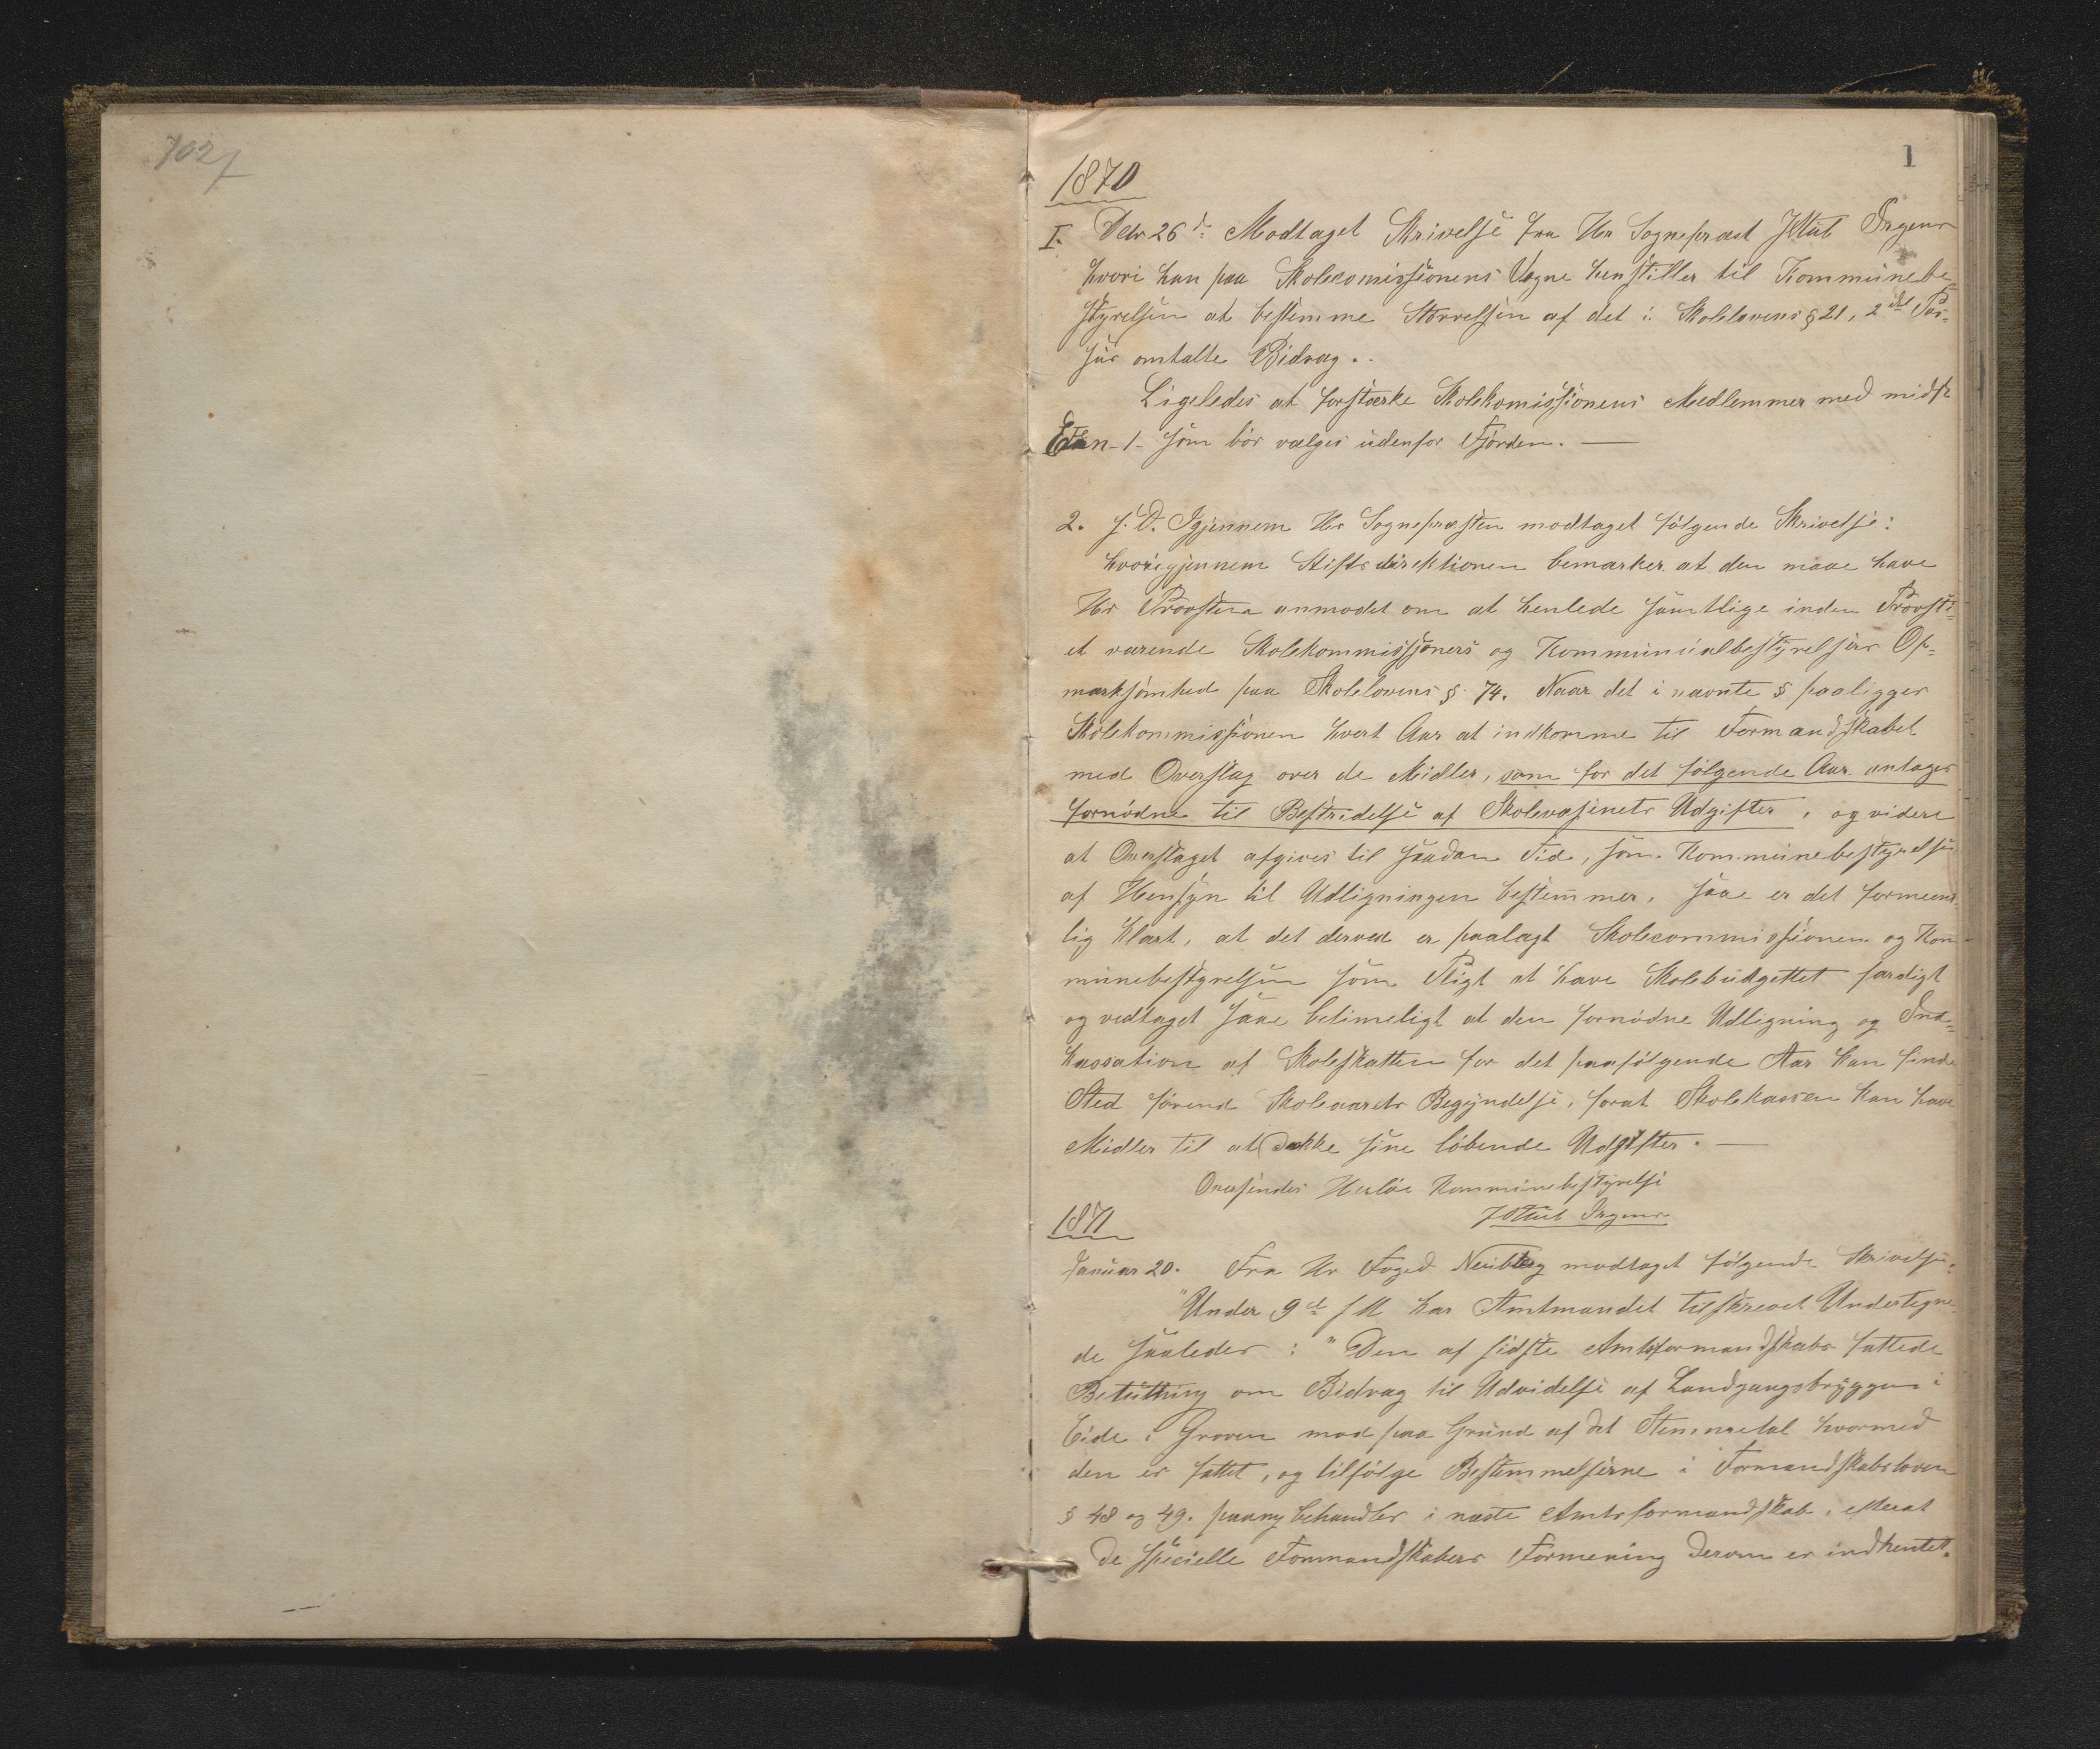 702/
1
1870
I. Debr 26de Modtaget Skrivelse fra Hr Sogneprest JStub Irgens
hvori han paa Skolecomissionens Vegne henstiller til Kommunebe-
styrelsen at bestemme Størrelsen af det i Skolelovens § 21, 2det Pas-
sus omtalte Bidrag.
Ligeledes at forstærke Skolekomissionens Medlemmer med midst
Een -1- som bør vælges udenfor Fjorden. —
2. S. D. Igjennem Hr Sognepresten modtaget følgende Skrivelse:
hvorigjennem Stiftsdirektionen bemærker at den maae have
Hr Provsten anmodet om at henlede samtlige inden Provsti-
et værende Skolekommissjoners og Kommunalbestyrelsers Op=
mærksomhed paa Skolelovens § 74. Naar det i nævnte § paaligger
Skolekommissionen hvert Aar at indkomme til Formandskabet
med Overslag over de Midler, som for det følgende Aar antages
fornødne til Bestridelse af Skolevæsenets Udgifter, og videre
at Overslaget afgives til saadan Tid, som Kommunebestyrelsen
af Hensyn til Udligningen bestemmer, saae er det formeent-
lig klart, at det derved er paalagt Skolecommissionen og Kom-
munebestyrelsen som Pligt at have Skolebudgettet færdigt
og vedtaget saae betimeligt at den fornødne Udligning og Ind=
kassation af Skoleskatten for det paafølgende Aar kan finde
Sted førend Skoleaarets Begyndelse, forat Skolekassen kan have
Midler til at dække sine løbende Udgifter. —
Oversendes Herløe Kommunebestyrelse
JStub Irgens
1871
Januar 20. Fra Hr Foged modtaget følgende Skrivelse:
"Under 9de f M har Amtmandet tilskrevet Undertegne-
de saaledes: "Den af sidste Amtsformandskabs fattede
Beslutning om Bidrag til Udvidelse af Landgangsbryggen i
Eide i Graven maa paa Grund af det Stemmetal hvormed
den er fattet, og tilfølge Bestemmelserne i Formandskabsloven
§ 48 og 49. paany behandles i næste Amtsformandskab, efterat
de specielle Formandskabers Formening derom er indhentet.